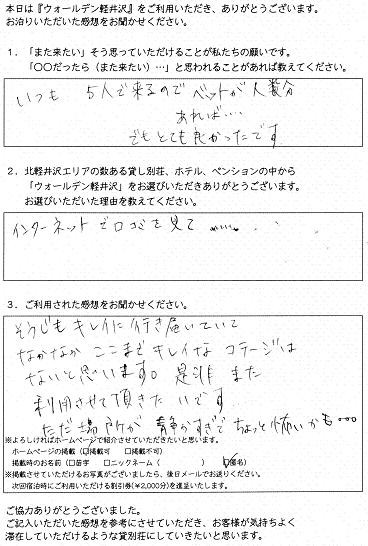 本日は『ウォールデン軽井沢』をご利用いただき、ありがとうございます。
お泊りいただいた感想をお聞かせください。
1．「また来たい」そう思っていただけることが私たちの願いです。
「〇〇だったら（また来たい）…」と思われることがあれば教えてください。
いつも 5人で来るので ベットが人数分
あれば…
でもとても良かったです
2．北軽井沢エリアの数ある貸し別荘、ホテル、ペンションの中から
「ウォールデン軽井沢」をお選びいただきありがとうございます。
お選びいただいた理由を教えてください。
インターネットで口コミを見て……
3．ご利用された感想をお聞かせください。
そうじもキレイに行き届いていて
なかなか ここまでキレイな コテージは
ないと思います。是非 また
利用させて頂きたいです
ただ場所が 静かすぎで ちょっと怖いかも…
※よろしければホームページで紹介させていただきたいと思います。
ホームページの掲載（☑掲載可 □掲載不可）
掲載時のお名前（□苗字 □ニックネーム（ ） ☑匿名）
※掲載させていただけるお写真がございましたら、後日メールでお送りください。
次回宿泊時にご利用いただける割引券(¥2,000分)を進呈いたします。
ご協力ありがとうございました。
ご記入いただいた感想を参考にさせていただき、お客様が気持ちよく
滞在していただけるような貸別荘にしていきたいと思います。